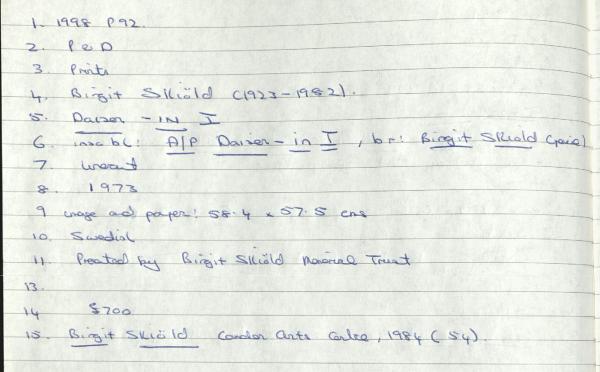 1. 1998 P92.
2. P & D
3. Prints
4. Birgit Skiöld (1923-1982).
5. -IN I
6. insc bl: A/P - in I, br: Birgit Skiold
7.
8. 1973
9 image and paper: 58.4 x 57.5 cms
10. Swedish
11. Presented by Birgit Skiöld Memorial Trust
13.
14 $700
15. Birgit Skiöld Camden Arts Centre, 1984 (54).